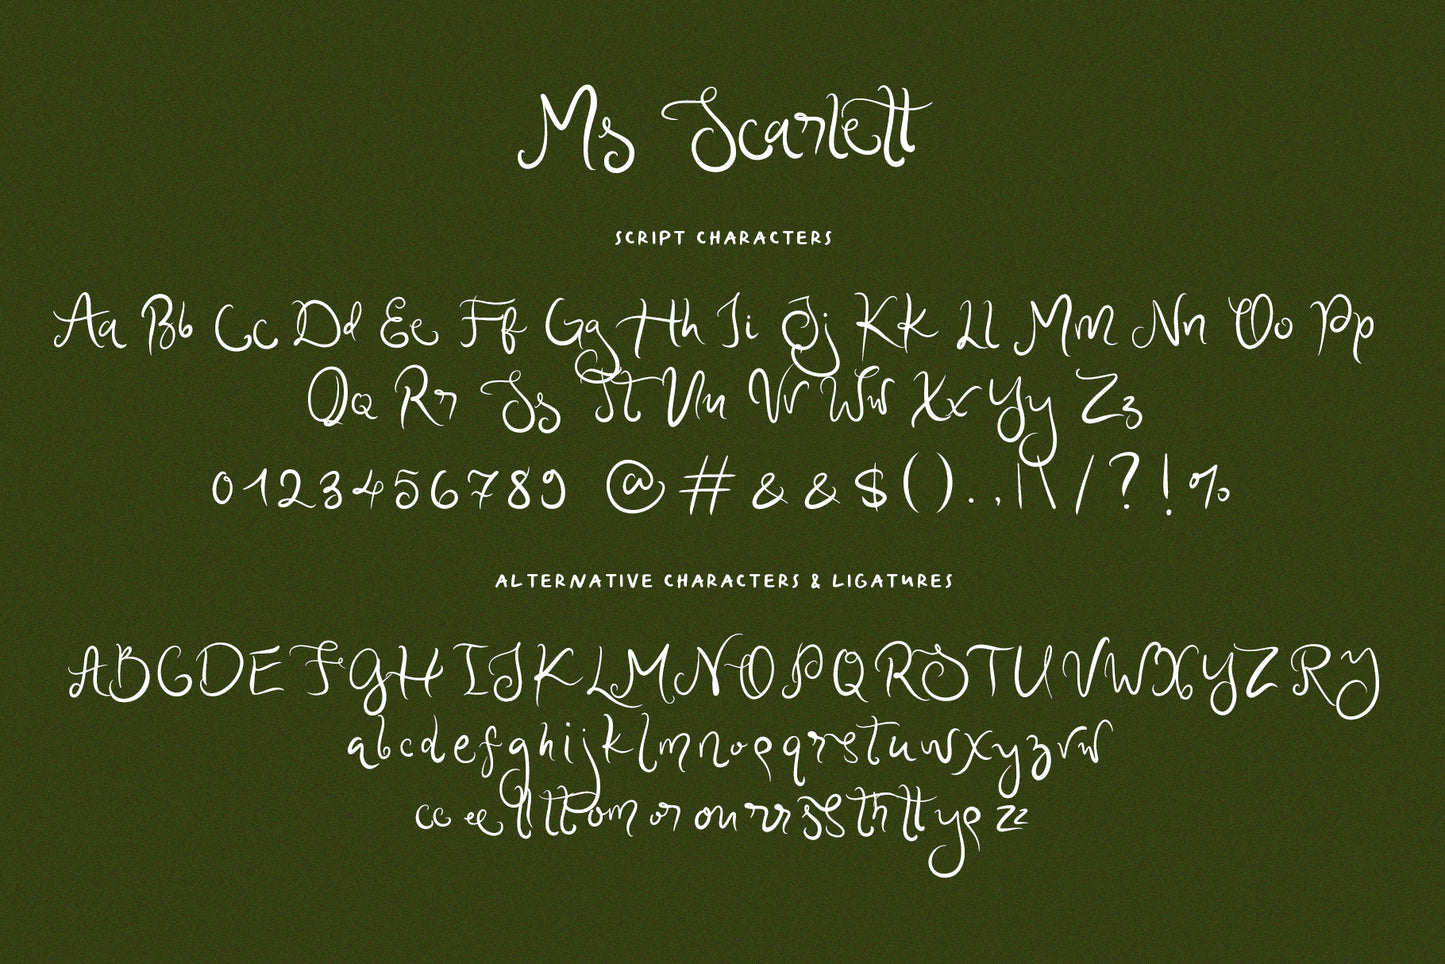 Ms Scarlett
SCRIPT CHARACTERS
Aa Bb Cc Dd Ee Ff Gg Hh Ii Jj Kk Ll Mm Nn Oo Pp
Qq Rr Ss Tt Uu Vv Ww Xx Yy Zz
0123456789 @ # & & $ ( ) . , | \ / ? ! %
ALTERNATIVE CHARACTERS & LIGATURES
ABCDEFGHIJKLMNOPQRSTUVWXYZRY
abcdefghijklmnopqrstuwxyzvw
cc ee ll tt om or on rr ss th tt yp zz